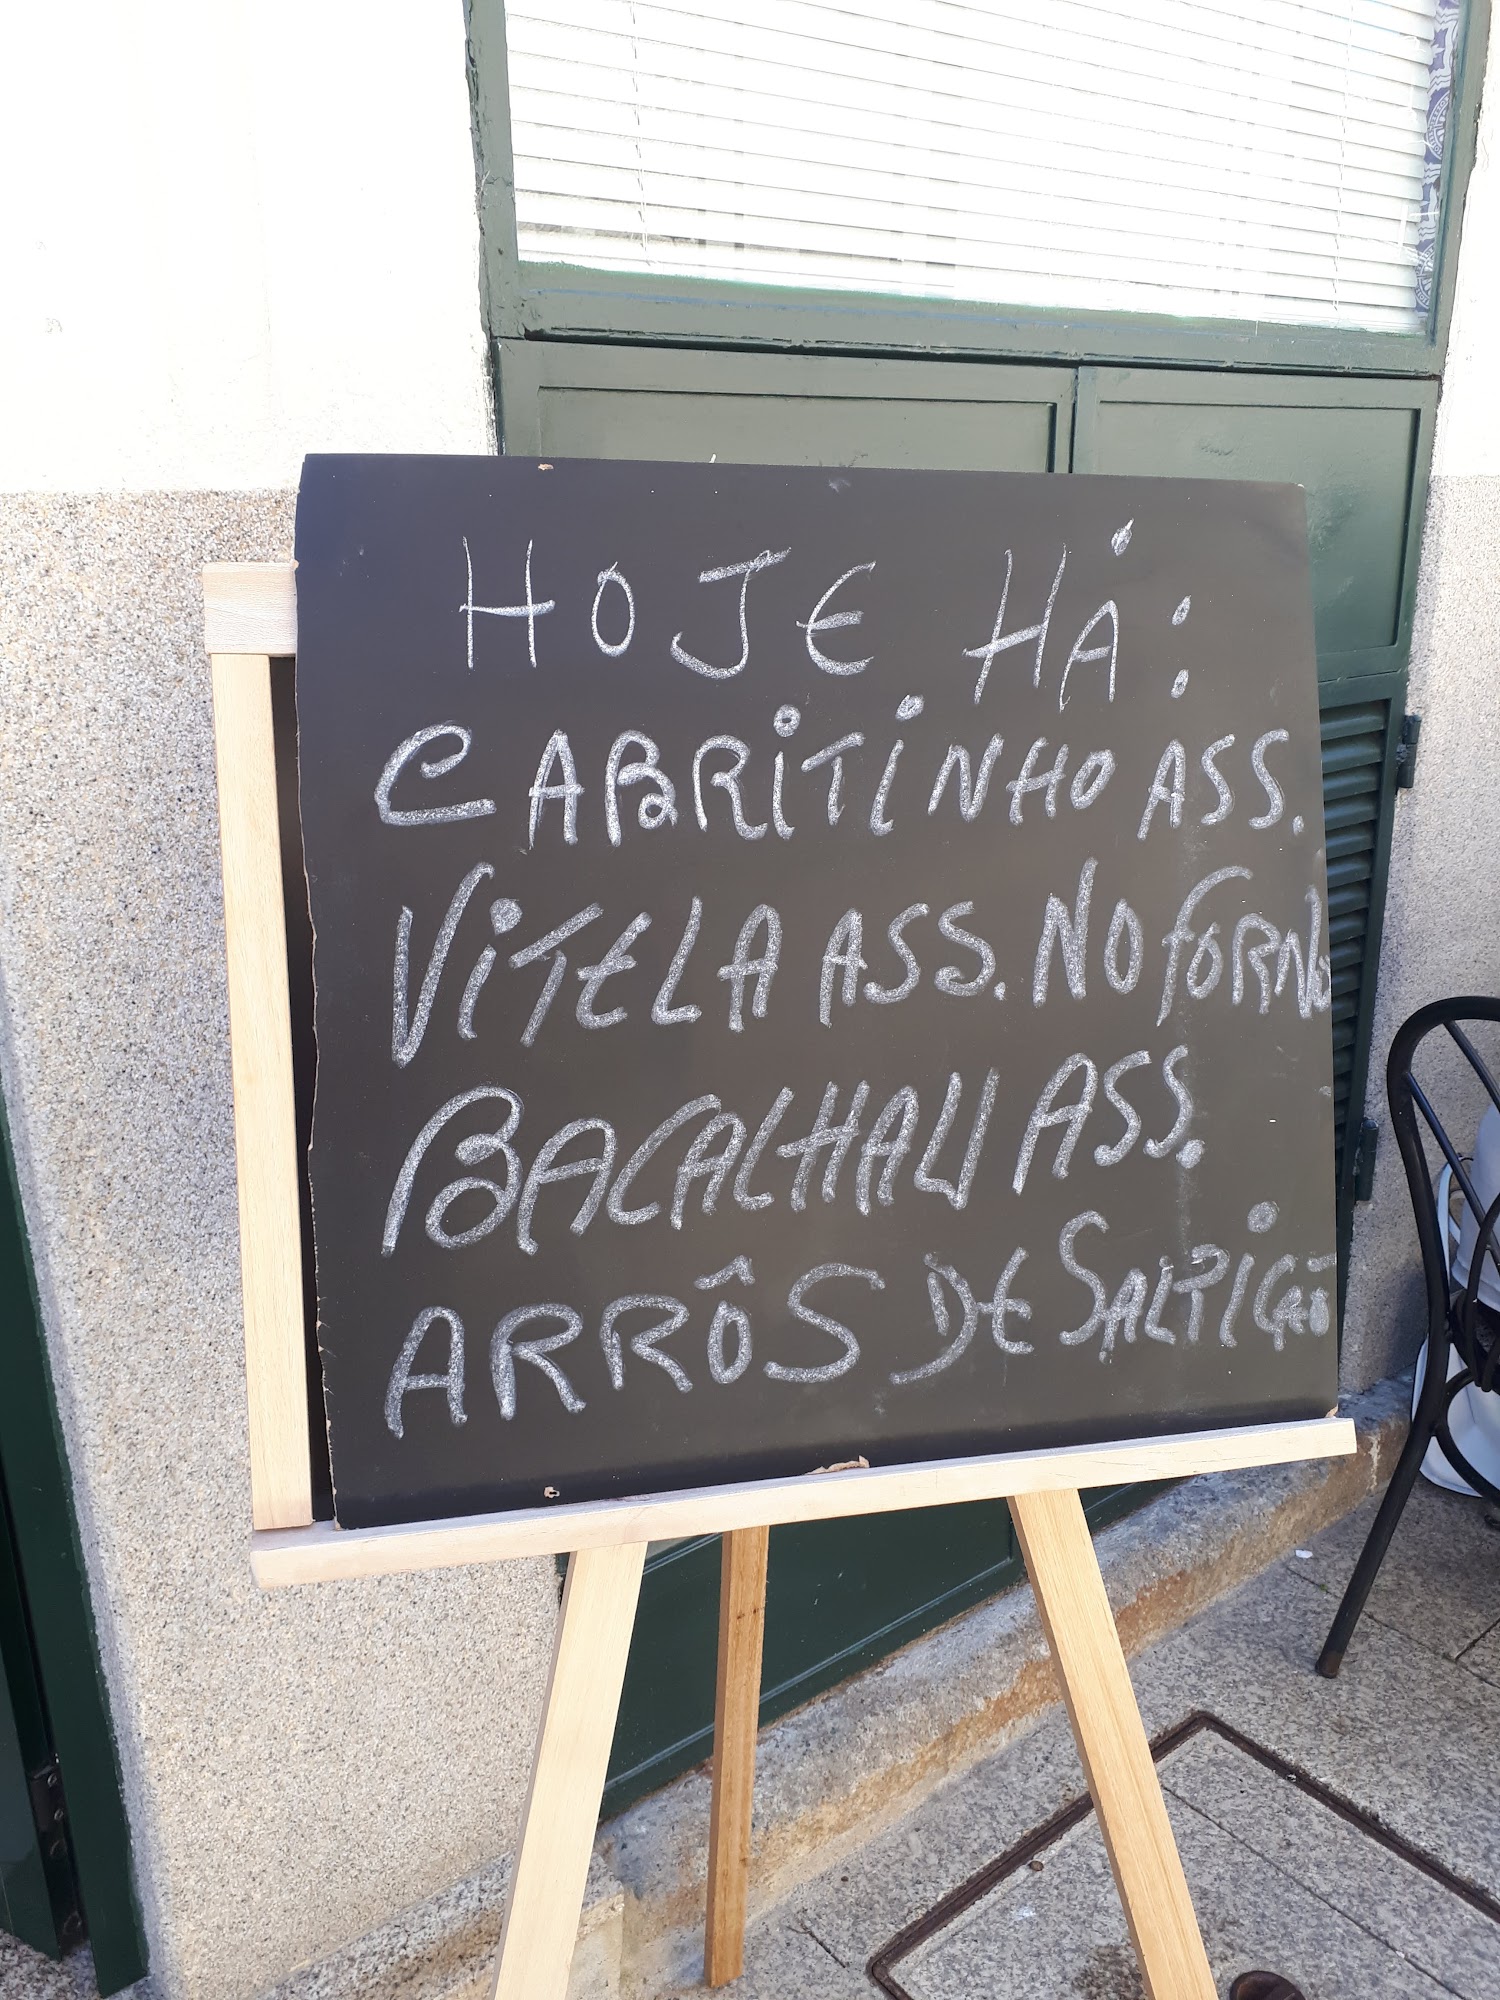 HOJE HÁ:
CABRITINHO ASS.
VITELA ASS. NO FORNO
BACALHAU ASS.
ARRÔS DE SALPICÃO